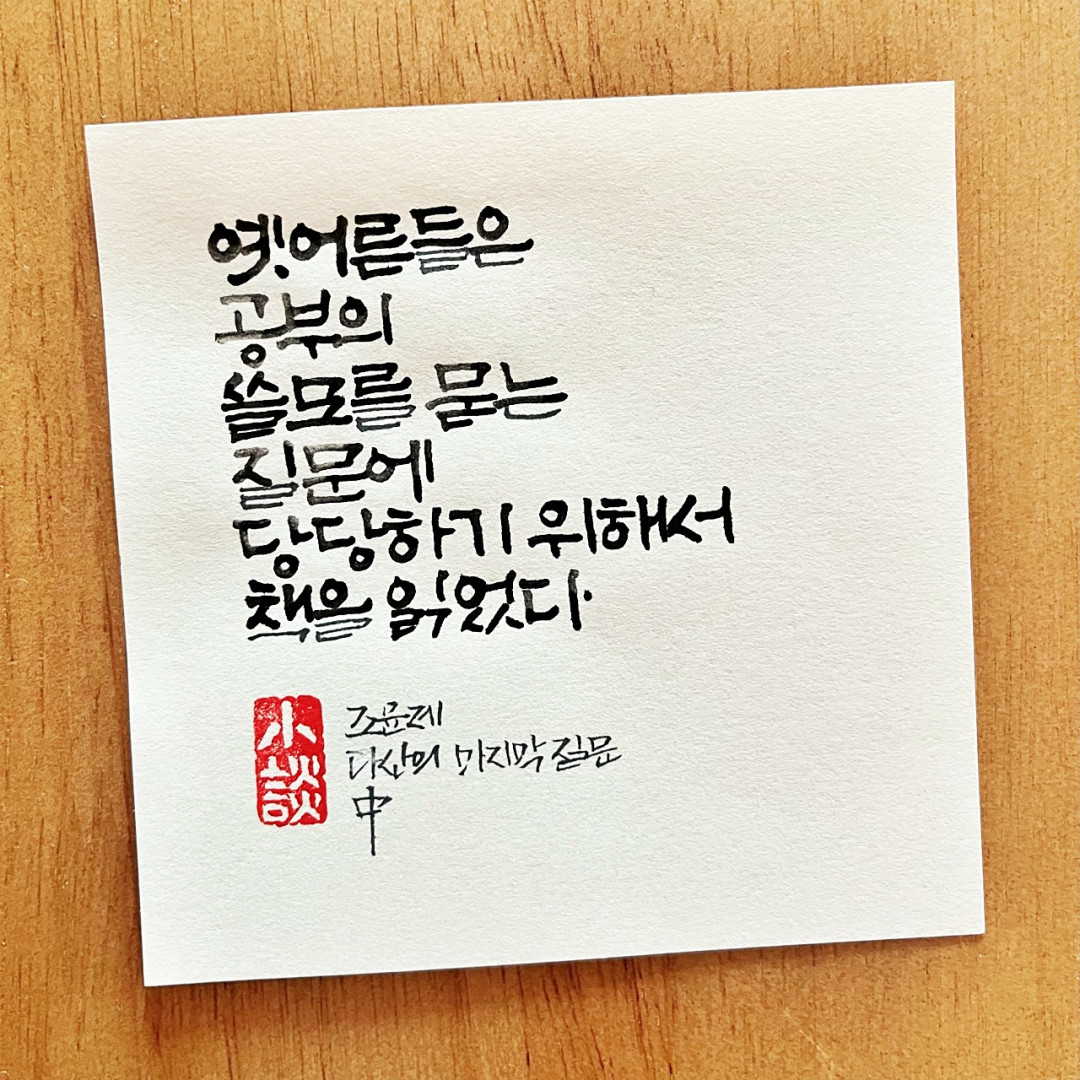 옛어른들은
공부의
쓸모를 묻는
질문에
당당하기 위해서
책을 읽었다.
小談
조윤제
다산의 마지막 질문
中